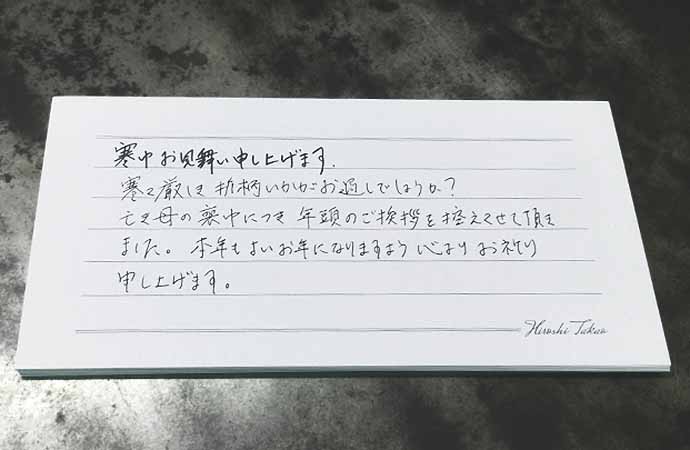 寒中お見舞い申し上げます.
寒さ厳しき折柄いかがお過しでしょうか?
亡き母の喪中につき 年頭のご挨拶を控えさせて頂き
ました。本年もよいお年になりますよう 心よりお祈り
申し上げます。
Hiroshi Takao